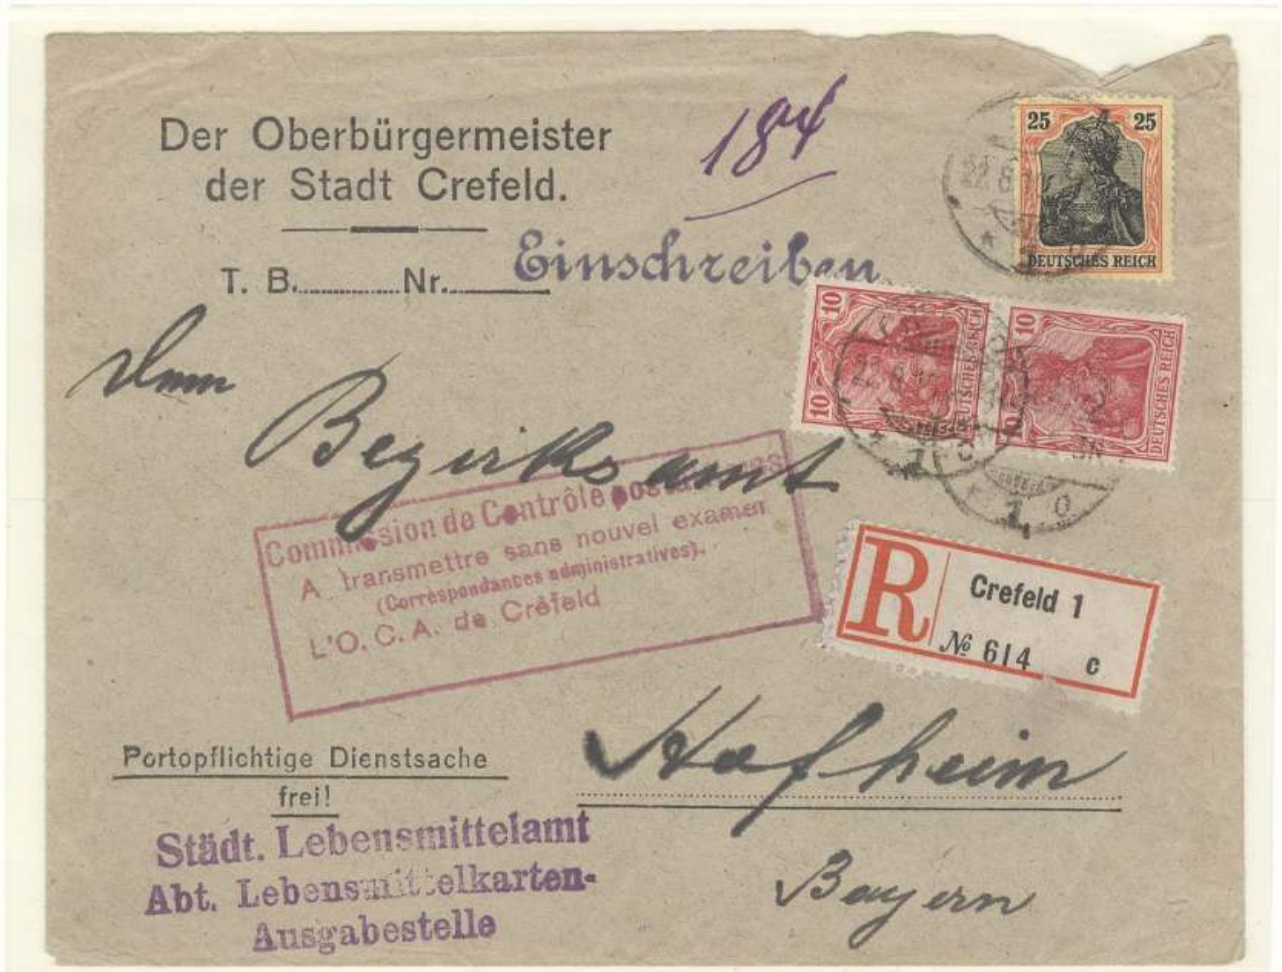 Der Oberbürgermeister
der Stadt Crefeld.
T. B. Nr.
Einschreiben
25 25
DEUTSCHES REICH
22.6.
10 10
DEUTSCHES REICH
10
DEUTSCHES REICH
Bezirksamt
Commission de Contrôle
A transmettre sans nouvel examen
(Correspondances administratives).
L'O. C. A. de Créfeld
R Crefeld 1
№ 614 c
Hofheim
Bayern
Portopflichtige Dienstsache
frei!
Städt. Lebensmittelamt
Abt. Lebensmittelkarten-
Ausgabestelle